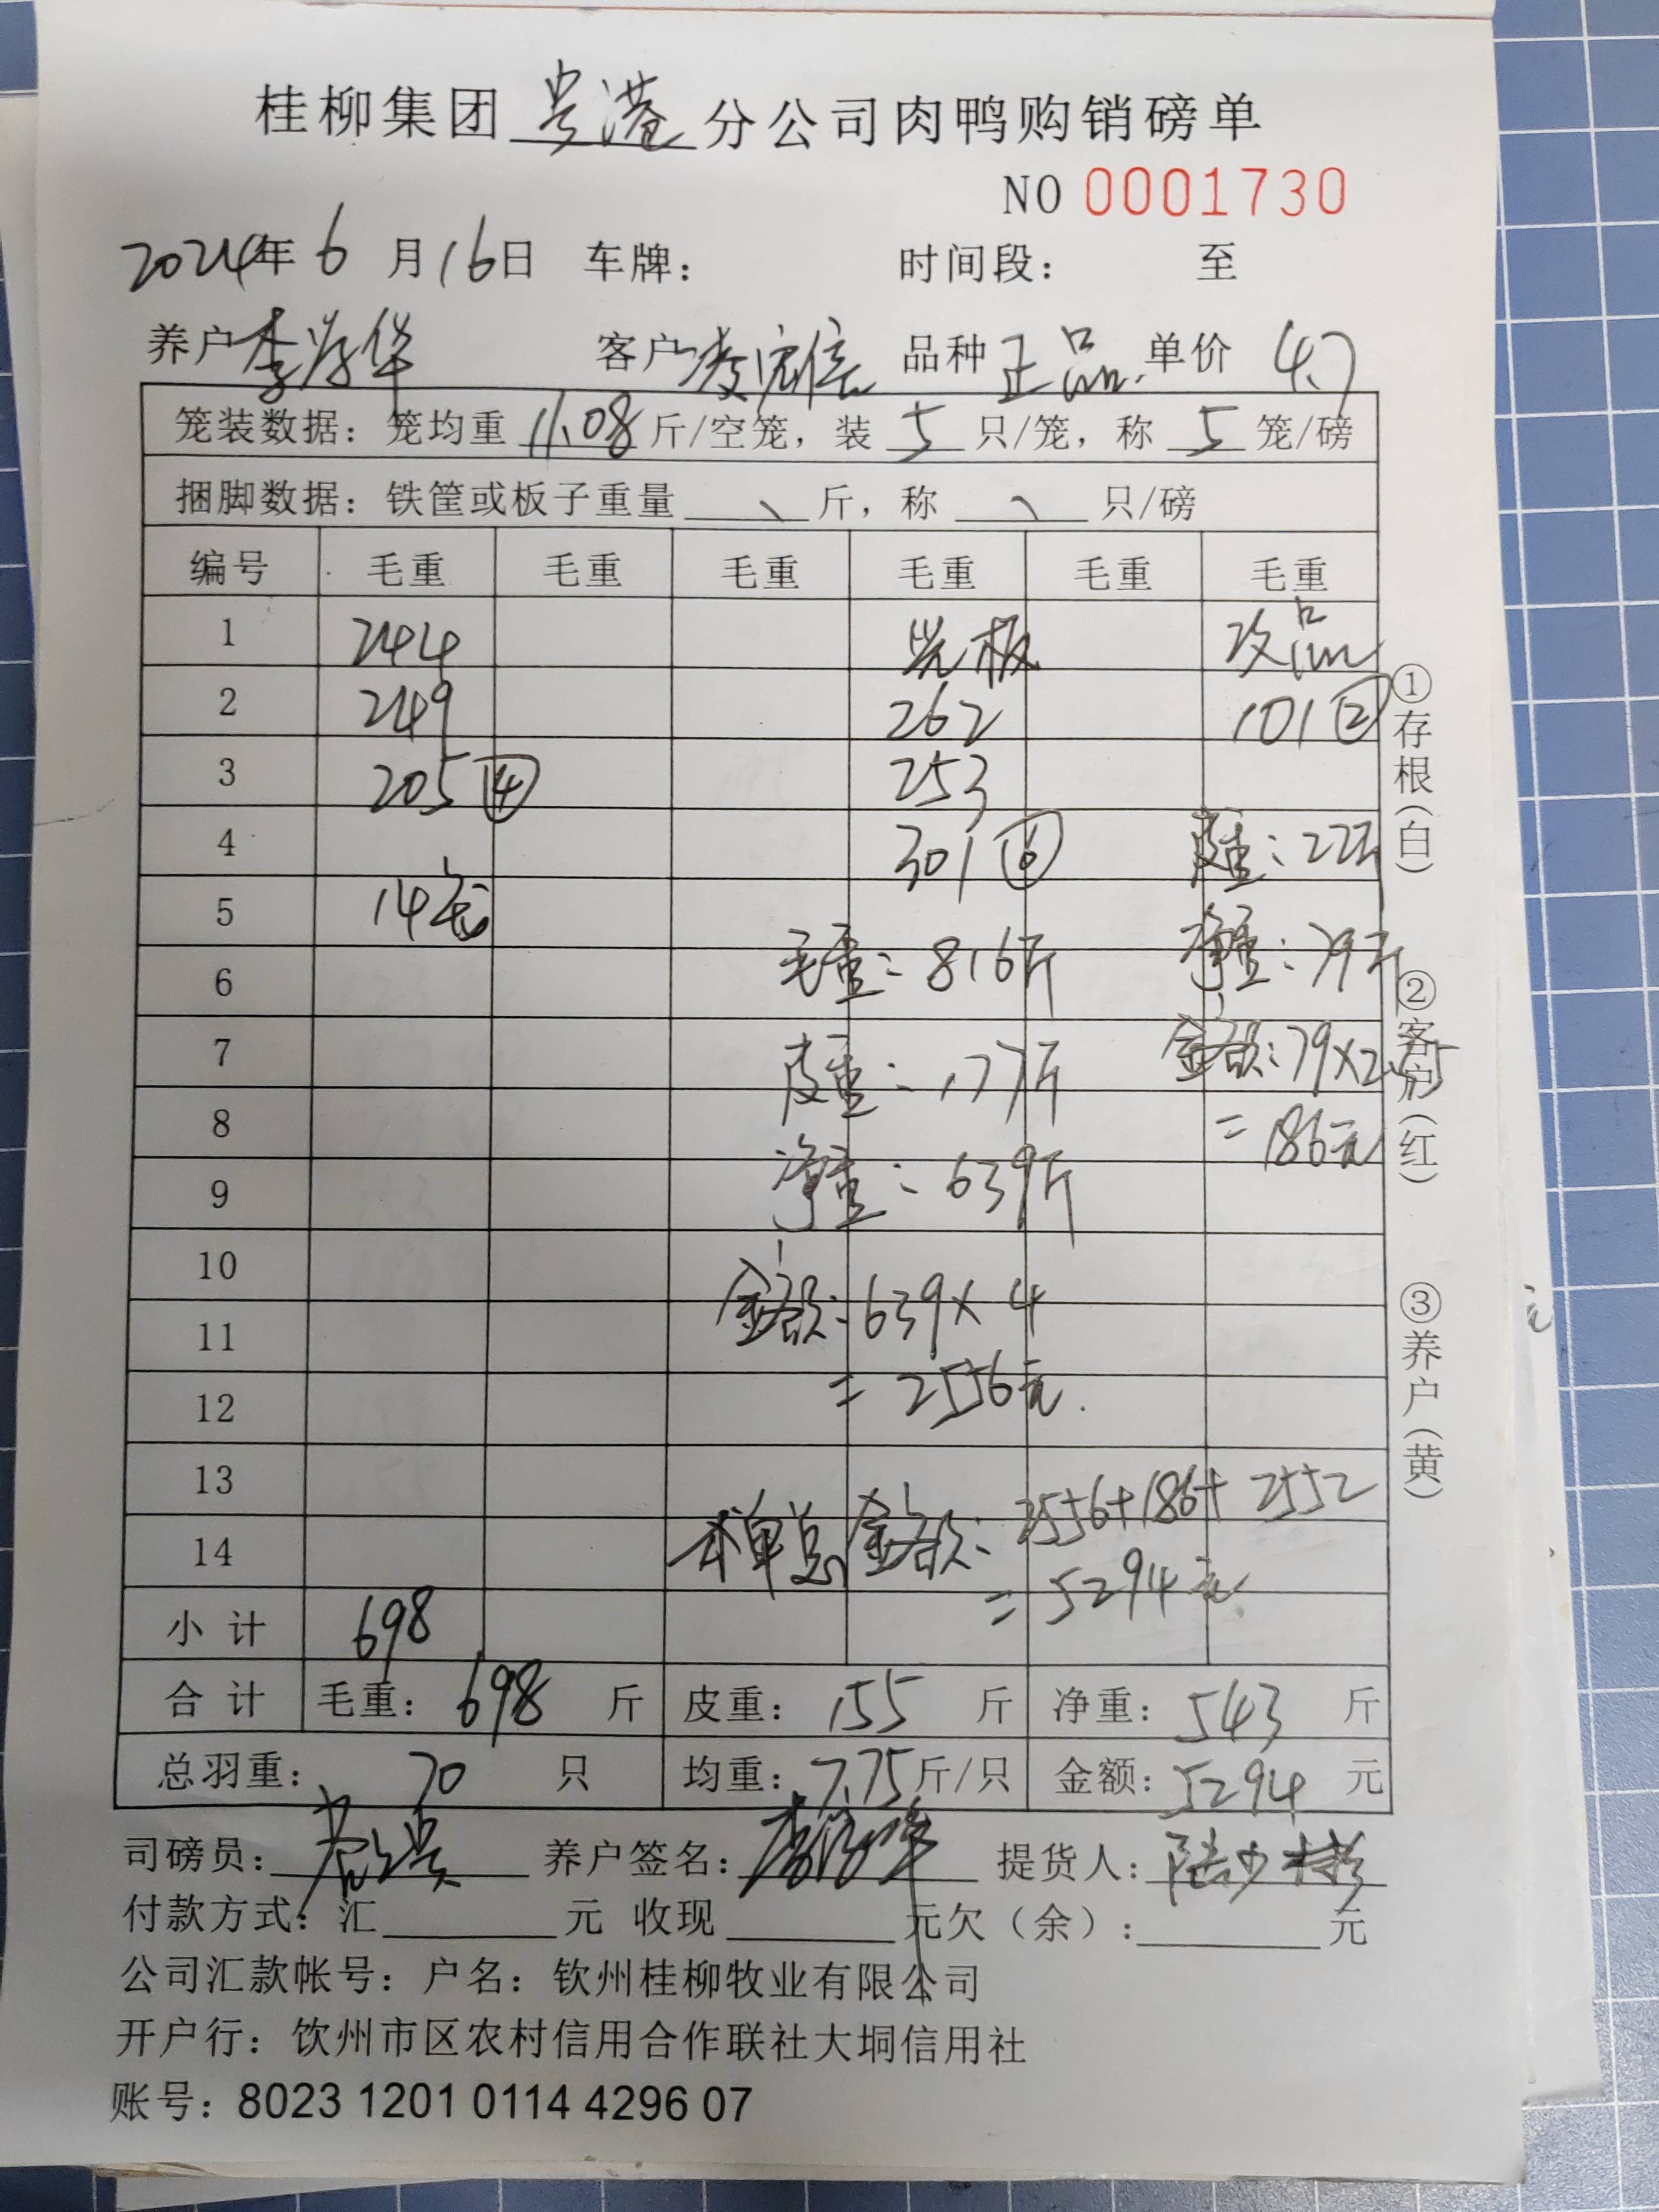 桂柳集团贵港分公司肉鸭购销磅单
NO 0001730
2024年6月16日 车牌： 时间段： 至
养户 客户 品种正品 单价 4.7
笼装数据：笼均重 11.08 斤/空笼，装 5 只/笼，称 5 笼/磅
捆脚数据：铁筐或板子重量 斤，称 只/磅
编号 毛重 毛重 毛重 毛重 毛重 毛重
1 244 光板 次品
2 249 262 101②
3 205④ 253
4 301⑥ 皮重：22斤
5 14笼
6 毛重：816斤 净重：79斤
7 皮重：177斤 金额：79×2.35
8 =186元
9 净重：639斤
10 金额：639×4
11
12 =2556元.
13 本单总金额：2556+186+2552
14 =5294元
小计 698
合计 毛重：698 斤 皮重：155 斤 净重：543 斤
总羽重：70 只 均重：7.75斤/只 金额：5294 元
司磅员： 养户签名： 提货人：陆少彬
付款方式：汇 元 收现 元欠（余）： 元
公司汇款帐号：户名：钦州桂柳牧业有限公司
开户行：钦州市区农村信用合作联社大垌信用社
账号：8023 1201 0114 4296 07
①存根（白）
②客户（红）
③养户（黄）